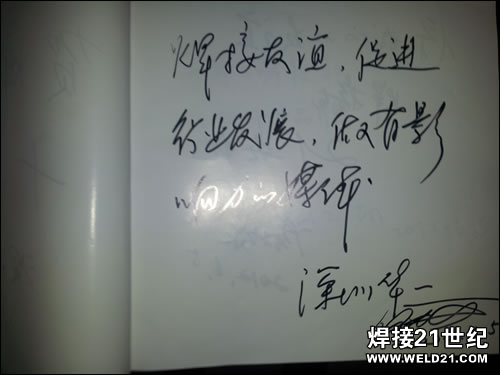 焊接友谊，促进
行业发展，做有影
响力的媒体
深圳华一
焊接21世纪
WWW.WELD21.COM